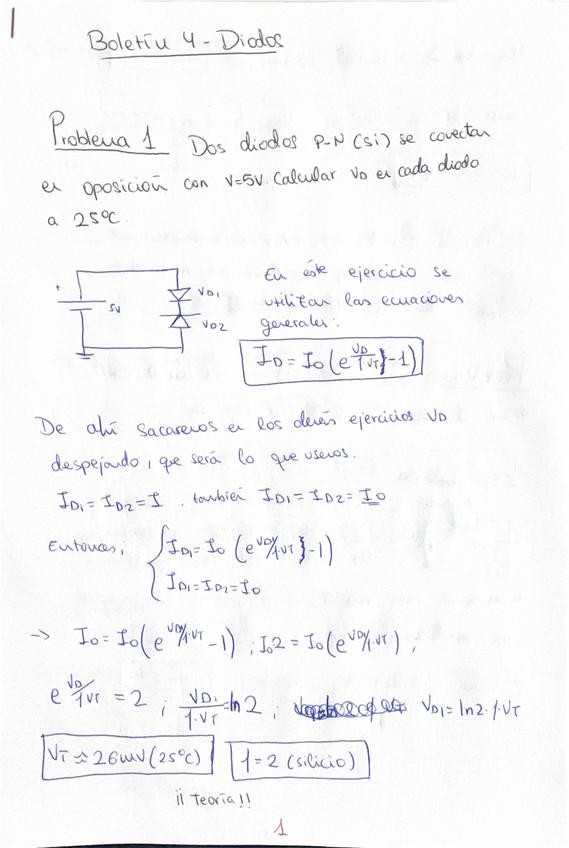 Boletín 4 - Diodos
Problema 1 Dos diodos P-N (Si) se conectan
en oposición con V=5V. Calcular VD en cada diodo
a 25ºC.
+
5V
VD1
VD2
En este ejercicio se
utilizan las ecuaciones
generales:
ID = I0 (e^(VD/ηVT) - 1)
De ahí sacaremos en los demás ejercicios VD
despejando, que será lo que usemos.
ID1 = ID2 = I. también ID1 = ID2 = I0
Entonces;
ID1 = I0 (e^(VD/ηVT) - 1)
ID1 = ID2 = I0
→ I0 = I0 (e^(VD/η·VT) - 1) ; I0 2 = I0 (e^(VD/η·VT)) ;
e^(VD/ηVT) = 2 ; VD1/η·VT = ln 2 ; VD1 = ln2·η·VT
VT ≈ 26mV (25ºC) η = 2 (silicio)
¡¡ Teoría!!
1